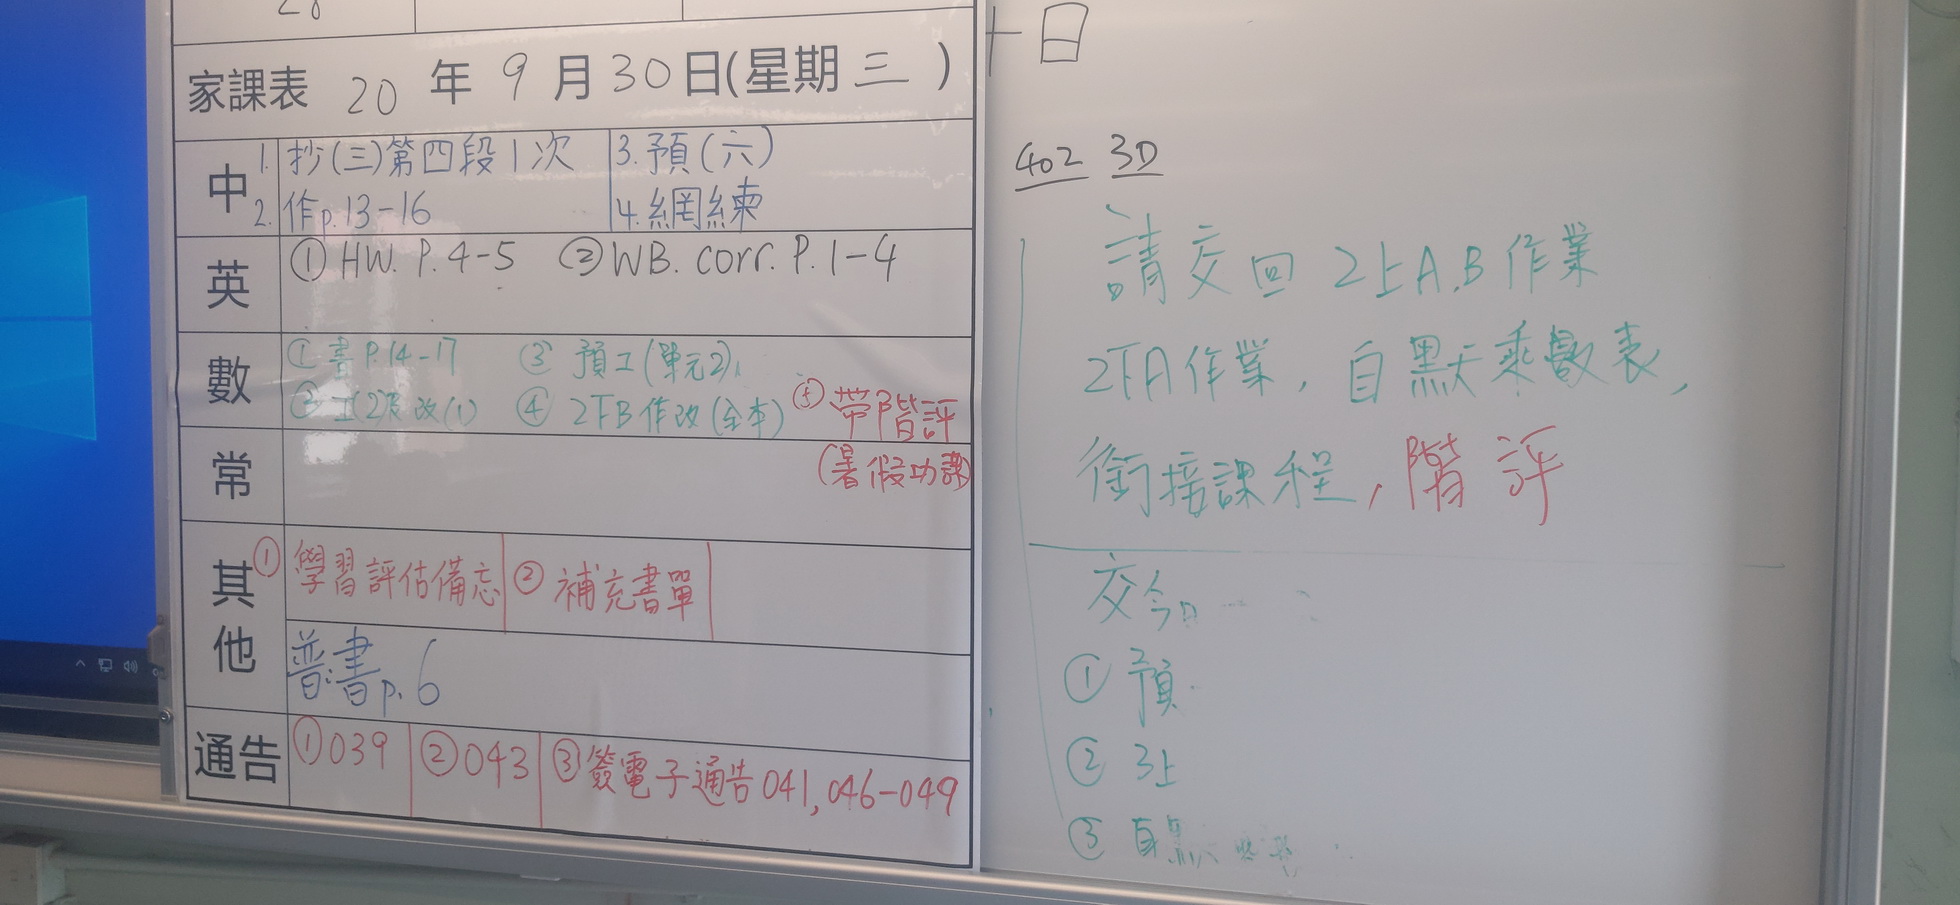 28
家課表 20 年 9 月 30 日(星期三)
中 1. 抄(三)第四段1次 3. 預(六)
2. 作p.13-16 4. 網練
英 ① HW. P.4-5 ② WB. corr. P.1-4
數 ① 書 P.14-17 ③ 預工(單元2)
② 工(2) 改(1) ④ 2下B作改(全本) ⑤ 帶階評
常 (暑假功課)
其他 ① 學習評估備忘 ② 補充書單
普:書p.6
通告 ①039 ②043 ③簽電子通告041,046-049
十日
402 3D
請交回 2上A.B作業
2下A作業,自默乘數表,
銜接課程,階評
交今日
① 預
② 3上
③ 自默